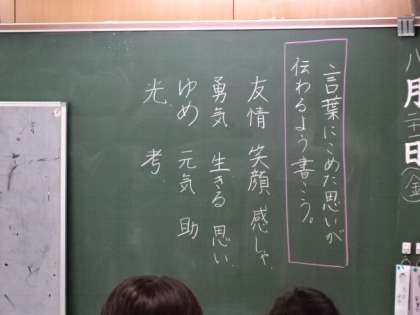 八月二十日(金)
言葉にこめた思いが
伝わるよう書こう。
友情 笑顔 感しゃ
勇気 生きる 思い
ゆめ 元気 助
光 考